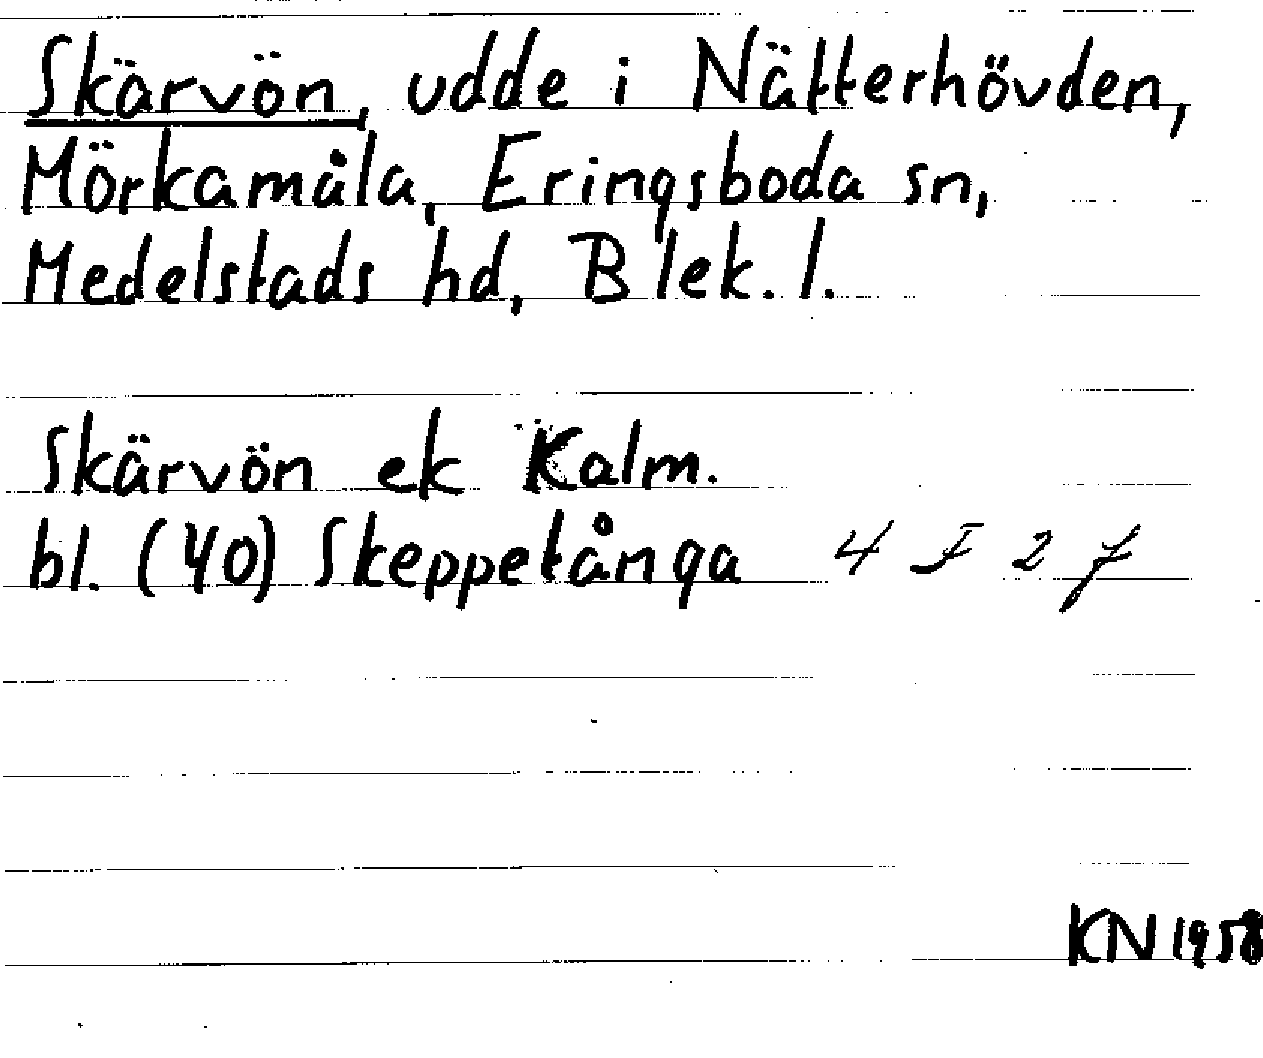 Skärvön, udde i Nätterhövden,
Mörkamåla, Eringsboda sn,
Medelstads hd, Blek. l.
Skärvön ek Kalm.
bl. (40) Skeppetånga 4 F 2 f
KN 1958